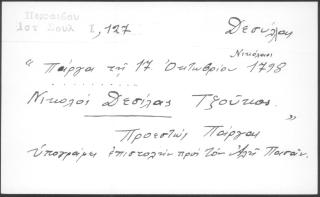 Περραιβού
Ιστ Σουλ Ι, 127
Δεσύλας
Νικόλαος
"Πάργα τῇ 17 Ὀκτωβρίου 1798
. . . . . . . . . .
Νικολοί Δεσίλας Τζούκος.
"
Προεστώς Πάργας
ὑπογράφει ἐπιστολήν πρός τόν Ἀλῆ Πασᾶν.